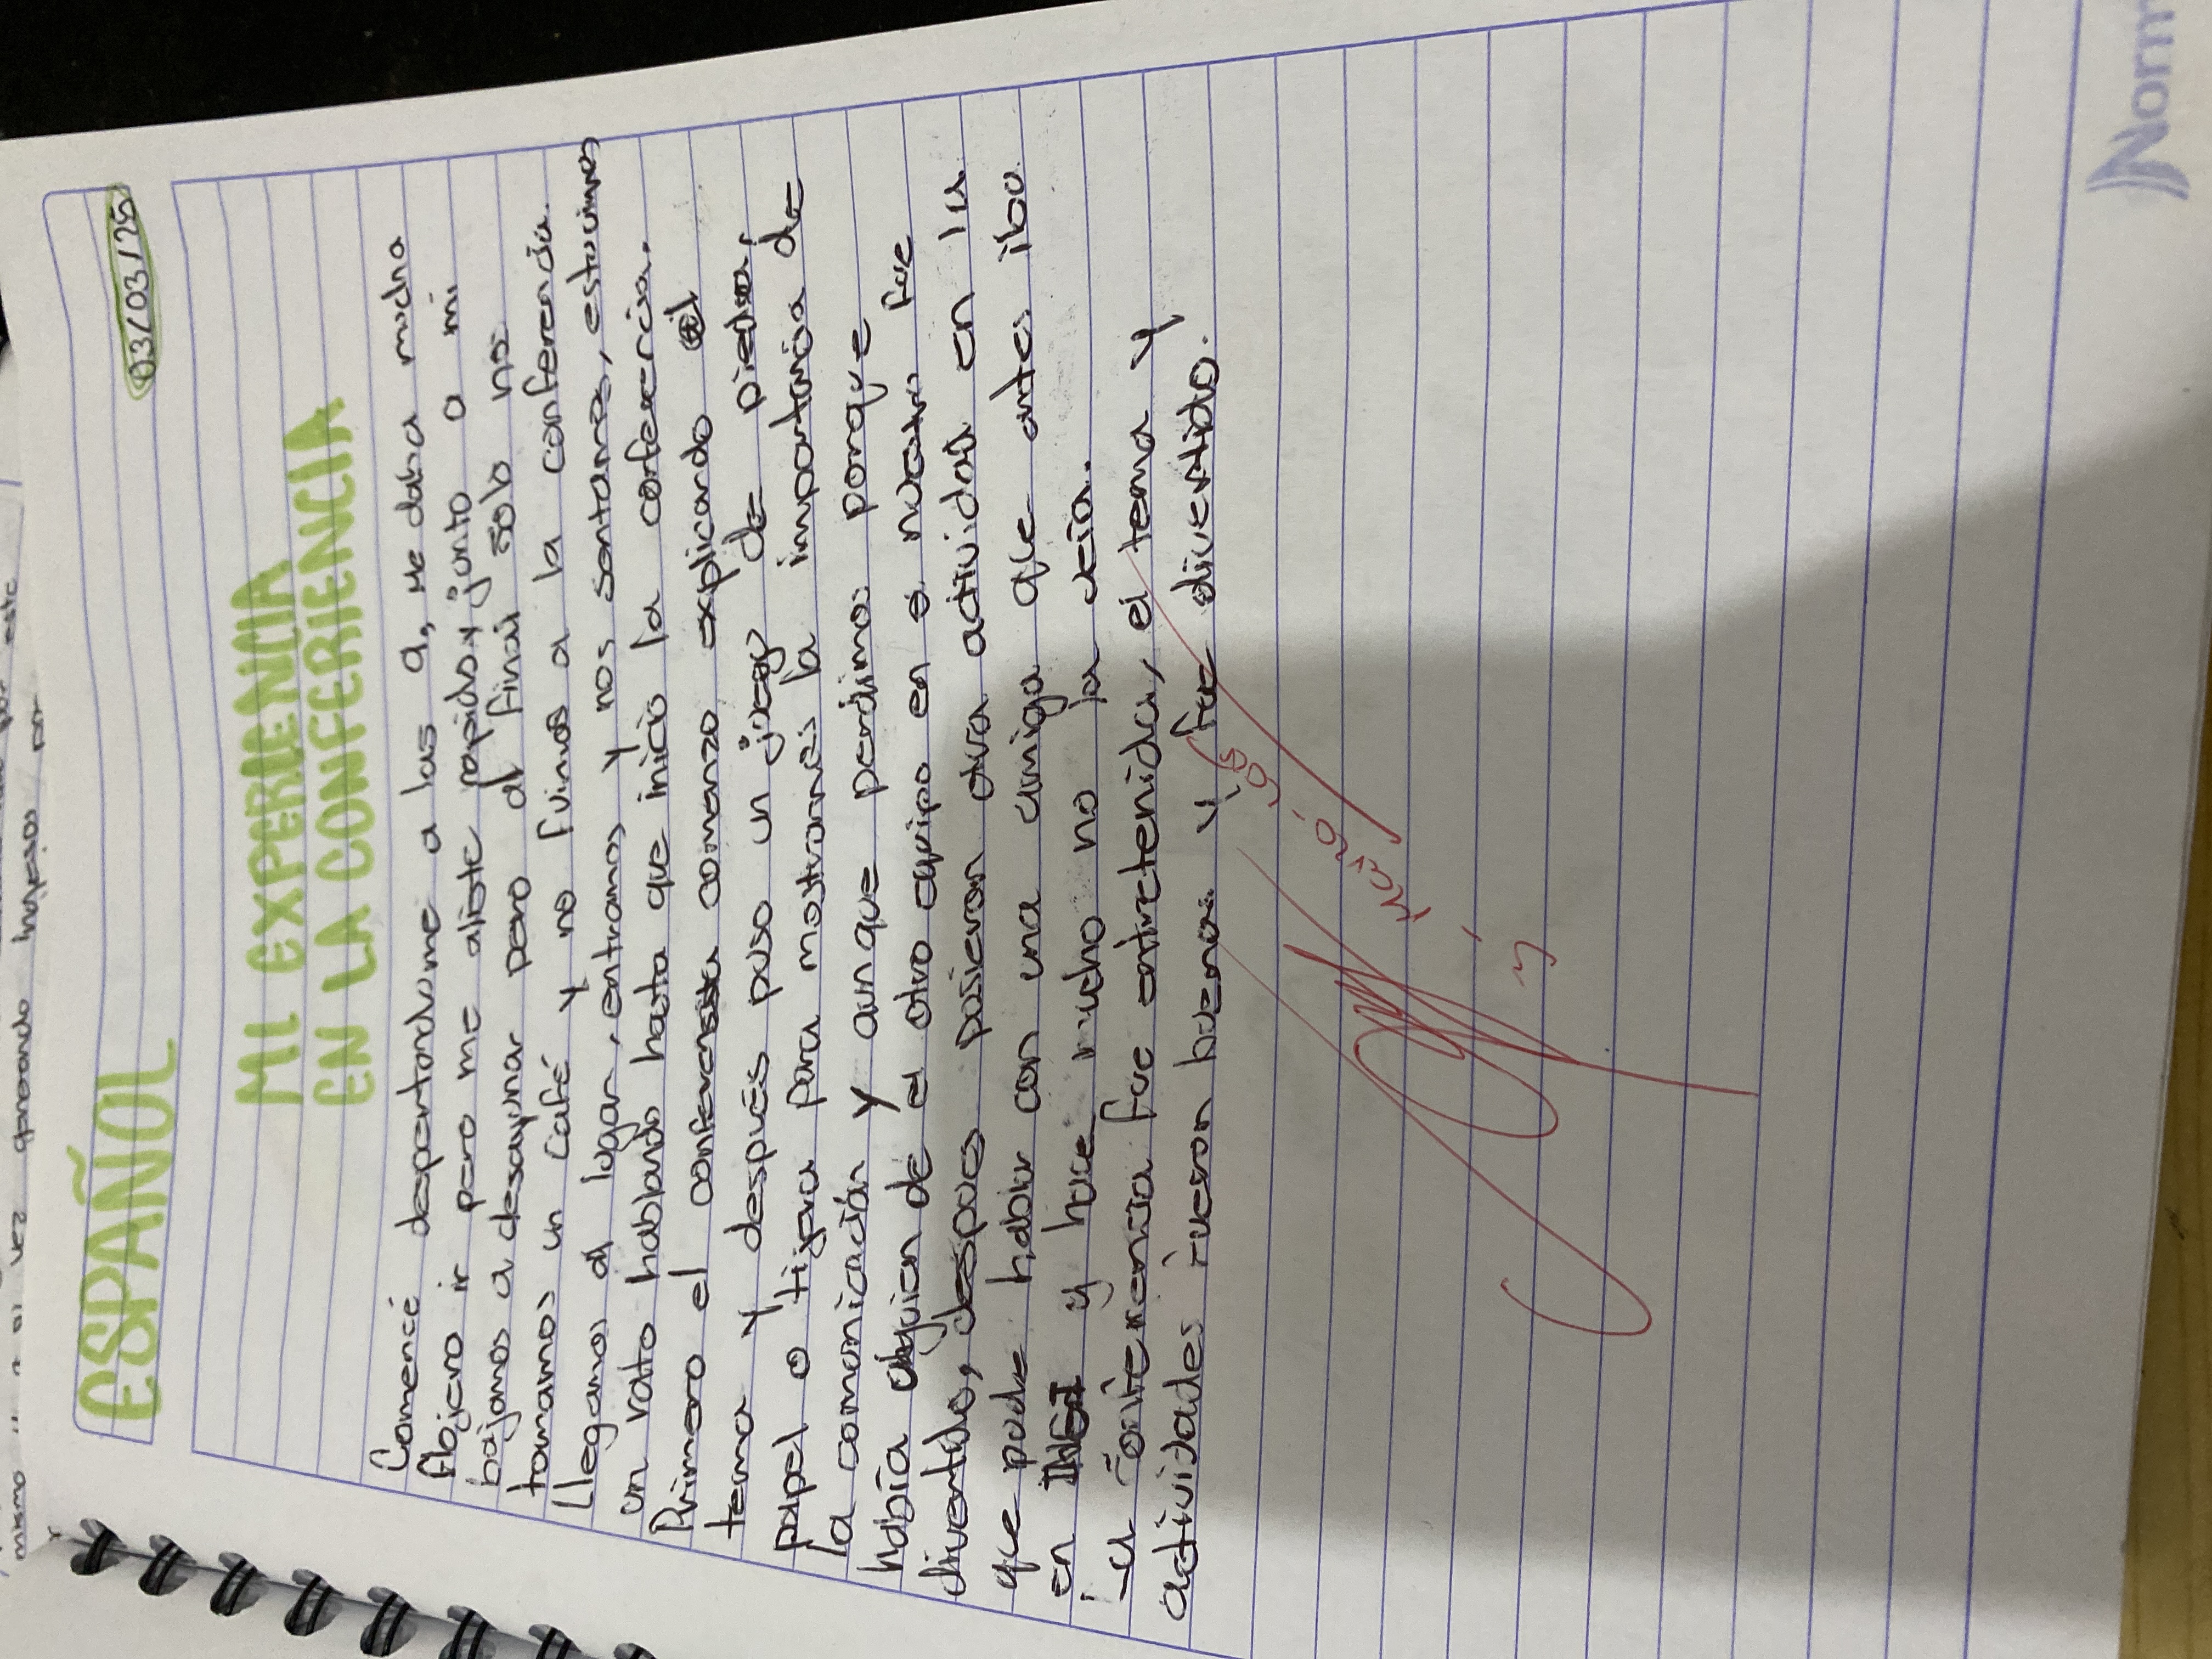 ESPAÑOL
03/03/25
MI EXPERIENCIA
EN LA CONFERIENCIA
Comencé despertandome a las 9, me daba mucha
flojera ir pero me aliste rapido y junto a mi
bajamos a desayunar pero al final solo nos
tomamos un café y no fuimos a la conferencia.
Llegamos al lugar, entramos y nos sentamos, estuvimos
un rato hablando hasta que inicio la conferencia.
Primero el conferensista comenzo explicando el
tema y después puso un juego de piedra,
papel o tijera para mostrarnos la importancia de
la comunicación y aunque perdimos porque
había alguien de el otro equipo en el nuestro fue
divertido, despues pusieron otra actividad en la
que pude hablar con una amiga que antes iba
en INGI y hace mucho no la veia.
La conferencia fue entretenida, el tema y
actividades fueron buenas y fue divertido.
Marzo
Norm